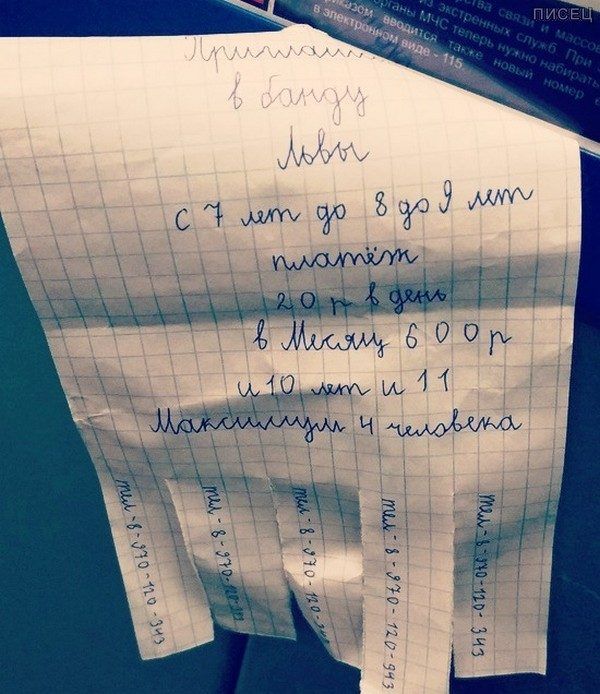 ПИСЕЦ
связи и массов
экстренных служб. При
органы МЧС теперь нужно набирать
вводится также новый номер
в электронном виде - 115
в банду
Львы
с 7 лет до 8 до 9 лет
платёж
20 р в день
в Месяц 600р
и 10 лет и 11
Максимум 4 человека
тел-8-970-120-343
тел-8-970-120-
тел-8-970-120-
тел-8-970-120-943
тел-8-970-120-343